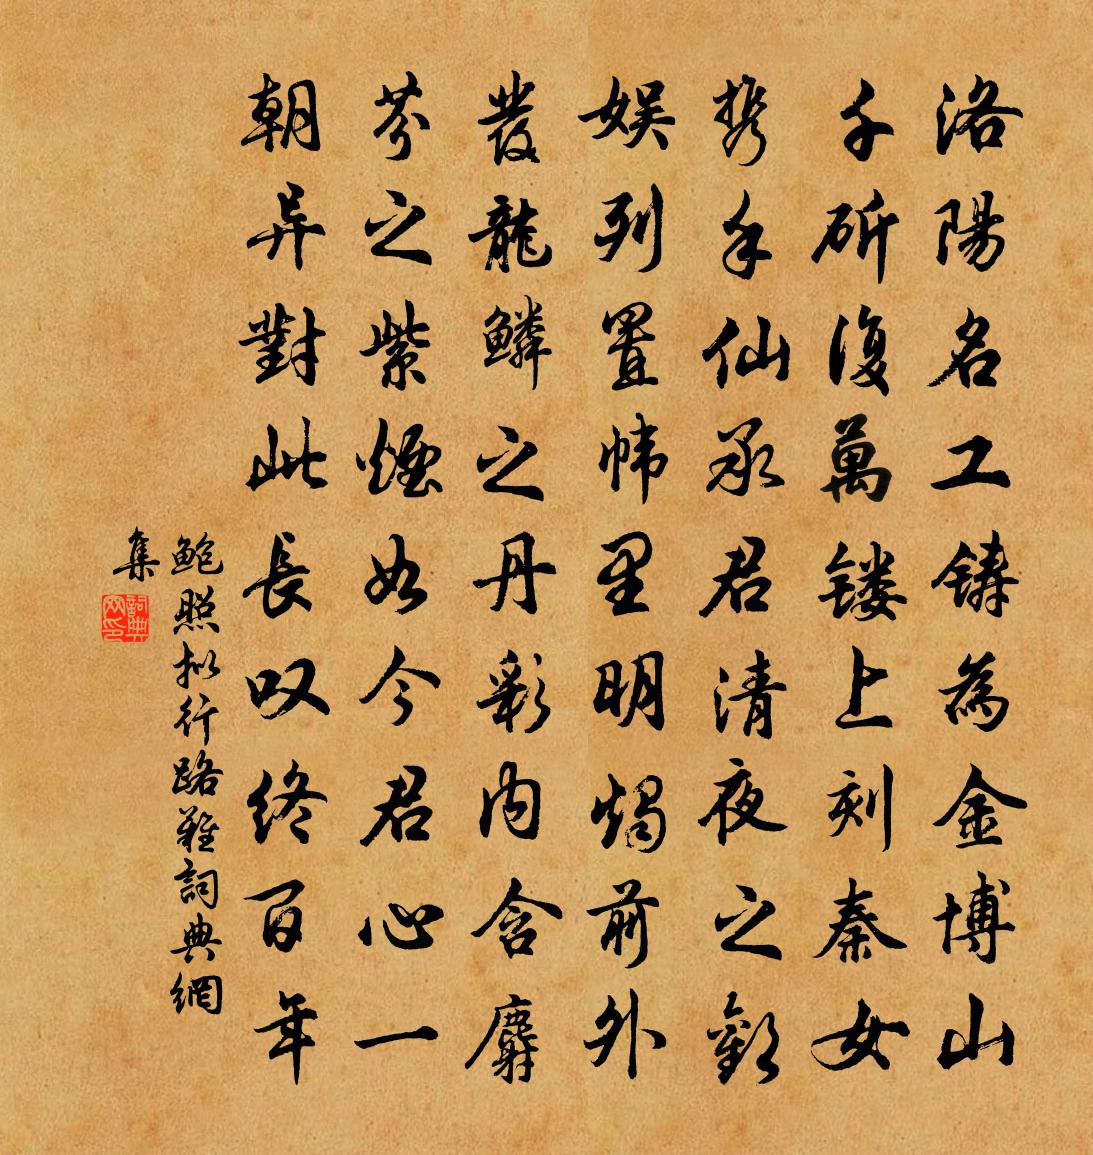 洛陽名工鑄為金博山
千斫復萬镂上刻秦女
携手仙承君清夜之歡
娱列置帏里明燭前外
發龍鱗之丹彩内含麝
芬之紫煙如今君心一
朝异對此長叹終百年
鲍照拟行路難詞典網
集
詞典
网印